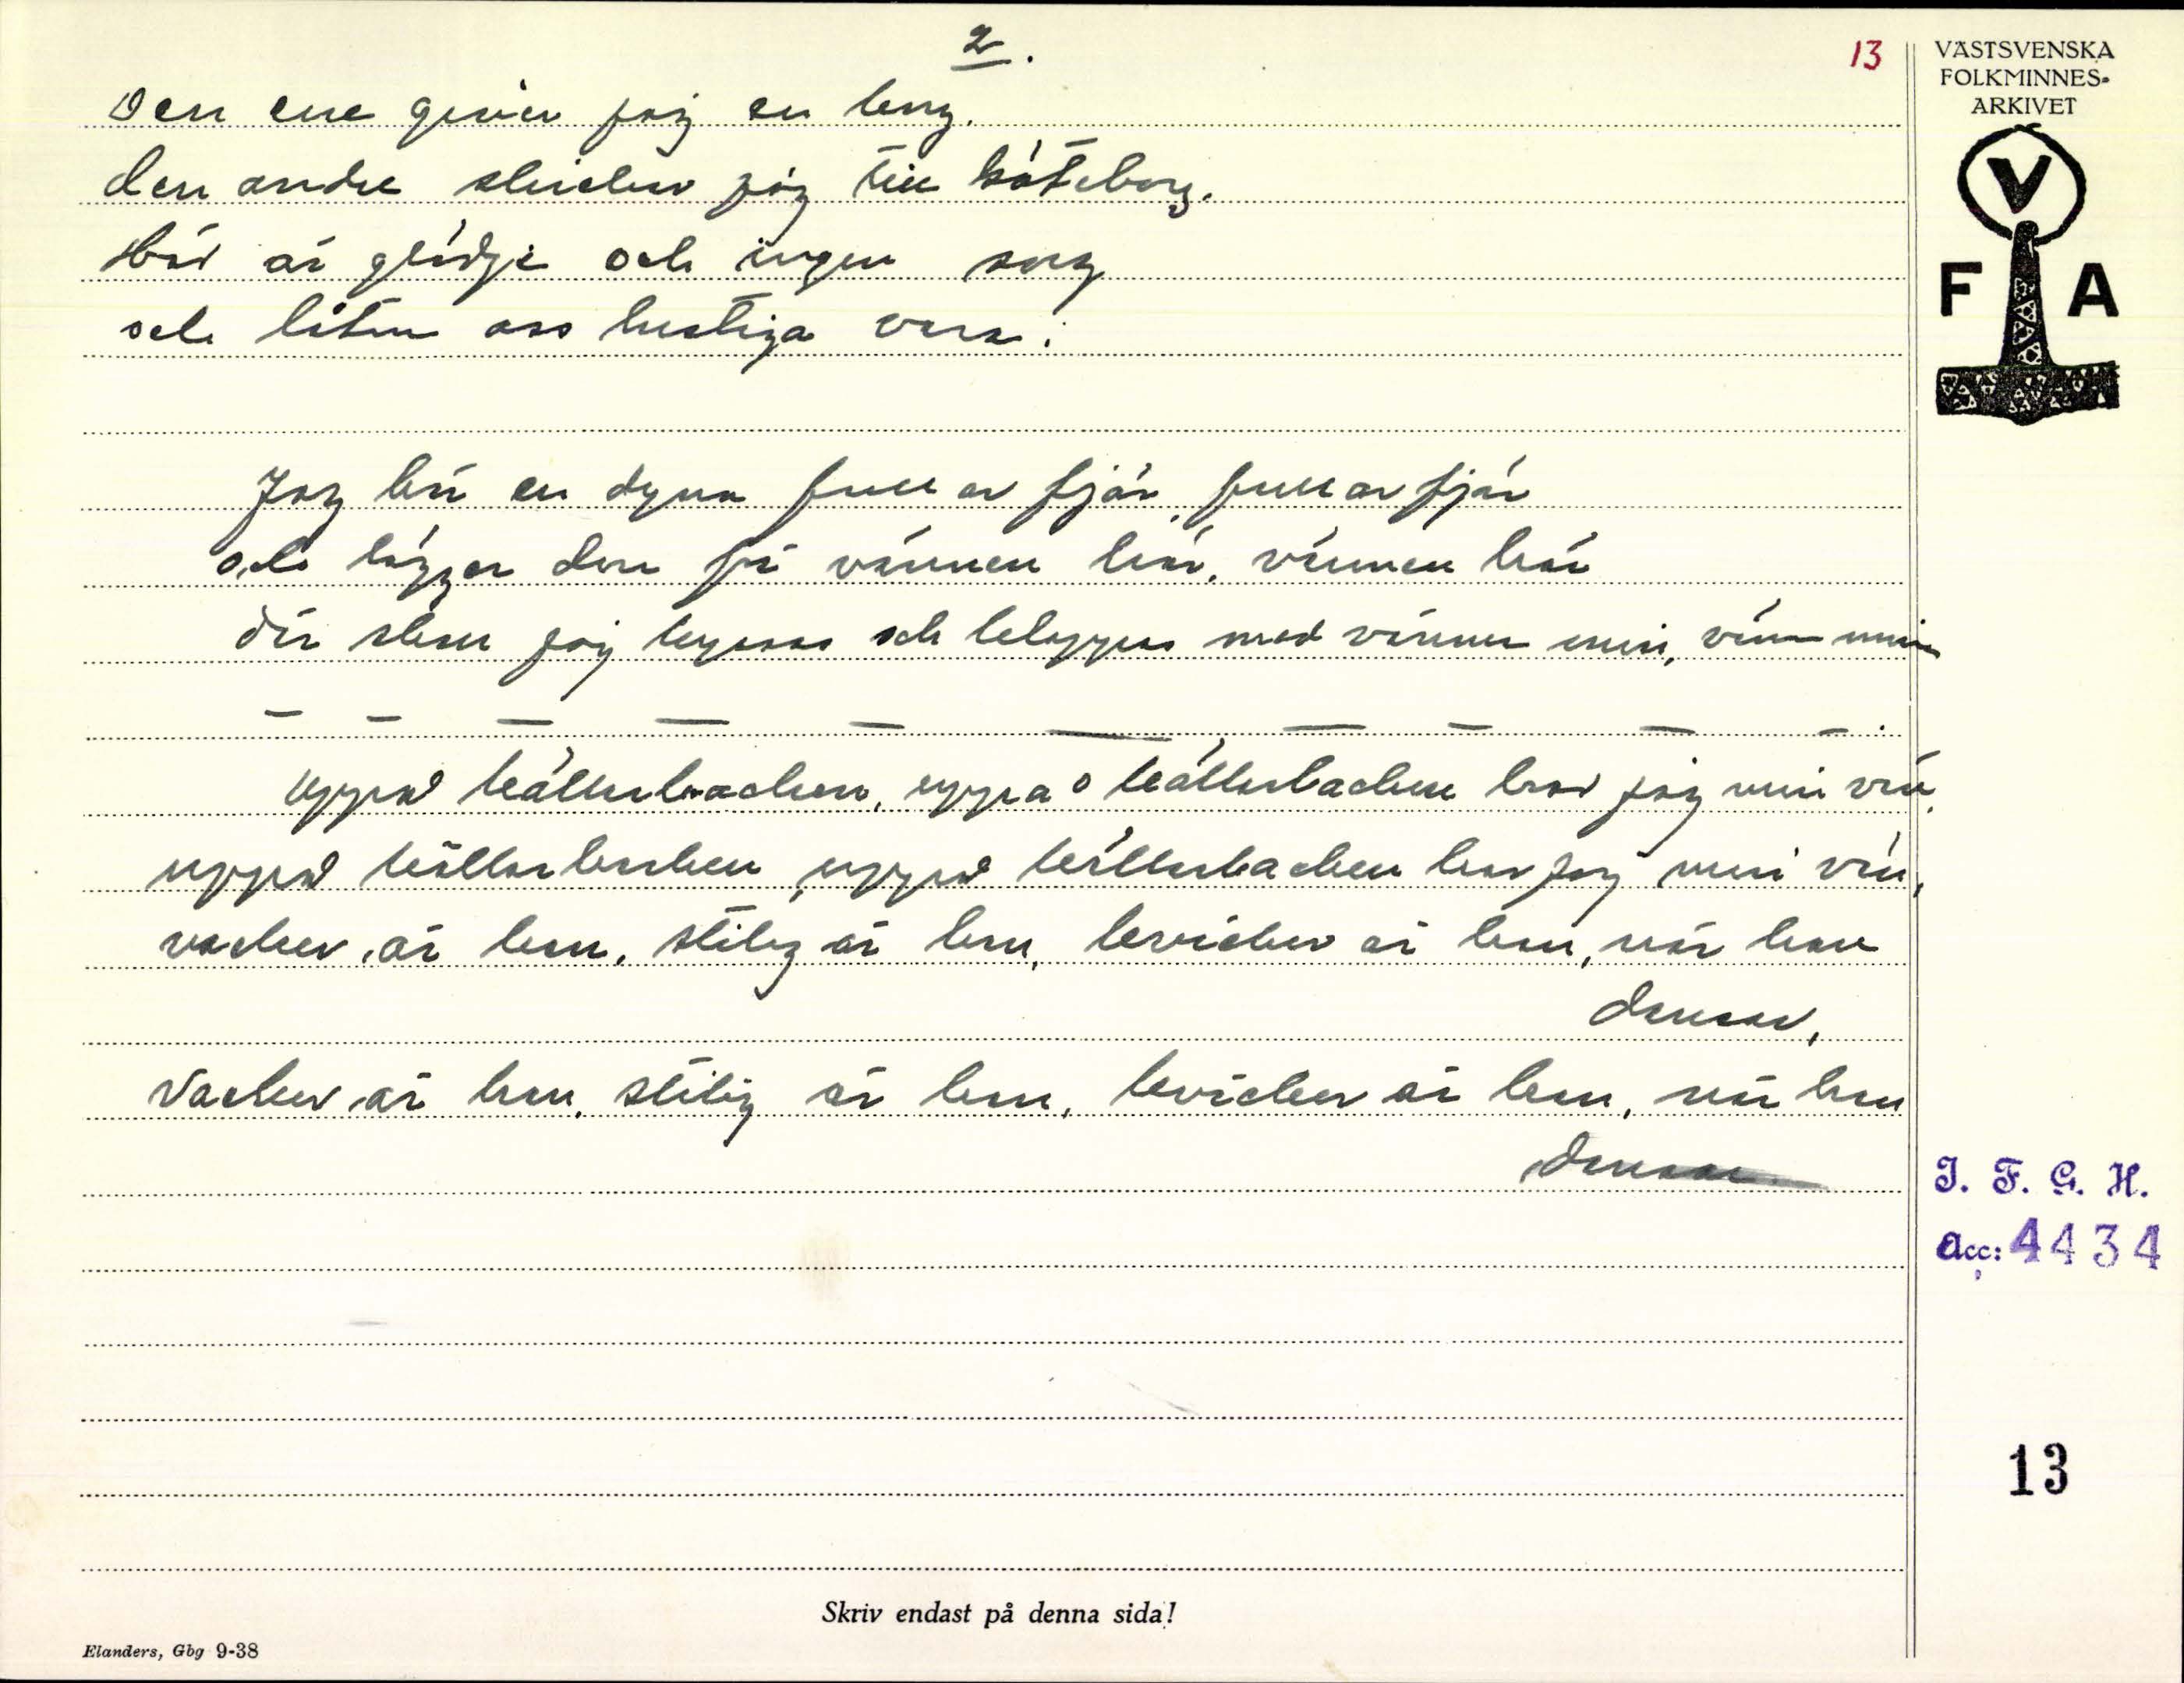 2.
13
VÄSTSVENSKA
FOLKMINNES-
ARKIVET
V
F A
Den ene giver jag en
den andre skickar jag till Göteborg.
Här är glädje och ingen sorg
och låtom oss lustiga vara.
Jag har en dyna full av fjär, full av fjär
och lägger den på vännen här, vännen här
där skall jag kyssas och klappas med vännen min, vännen min
— — — — — — — — — —
Uppå källarbacken, uppå källarbacken har jag min vän,
uppå källarbacken, uppå källarbacken har jag min vän,
vacker är han, stilig är han, kvicker är han, när han
dansar,
Vacker är han, stilig är han, kvicker är han, när han
dansar
I. F. G. H.
Acc: 4434
13
Skriv endast på denna sida!
Elanders, Gbg 9-38